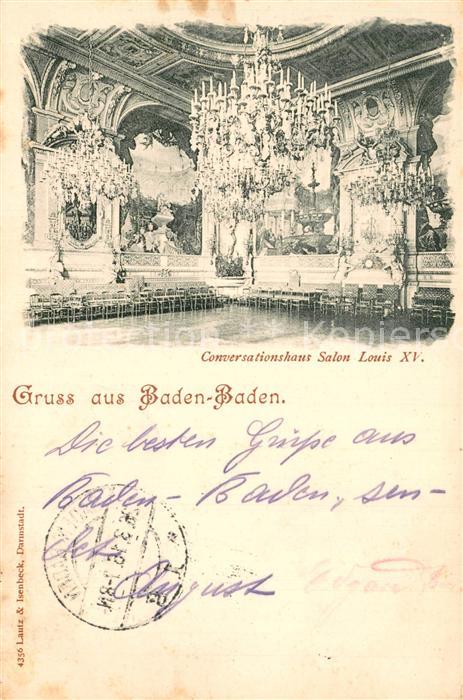 Conversationshaus Salon Louis XV.
Gruss aus Baden-Baden.
Die besten Grüße aus
Baden-Baden, sen-
det
August
4356 Lautz & Isenbeck, Darmstadt.